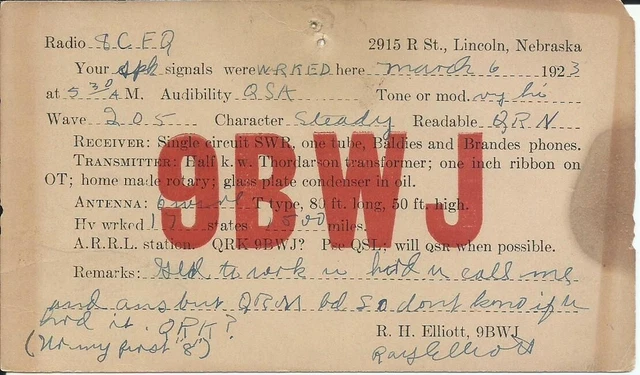 Radio 8CFQ 2915 R St., Lincoln, Nebraska
Your spk signals were WRKED here march 6 1923
at 5 30 A M. Audibility QSA Tone or mod. vy hi
Wave 205 Character Steady Readable QRN
RECEIVER: Single circuit SWR, one tube, Baldies and Brandes phones.
TRANSMITTER: Half k.w. Thordarson transformer; one inch ribbon on
OT; home made rotary; glass plate condenser in oil.
ANTENNA: 6 wire T type, 80 ft. long, 50 ft. high.
Hv wrked 17 states 500 miles.
A.R.R.L. station. QRK 9BWJ? Pse QSL; will QSR when possible.
9BWJ
Remarks: Gld to wrk u hrd u call me
and ans but QRM bd so dont kno if u
hrd it. QRK?
(Ur my first "8")
R. H. Elliott, 9BWJ
Ray Elliott